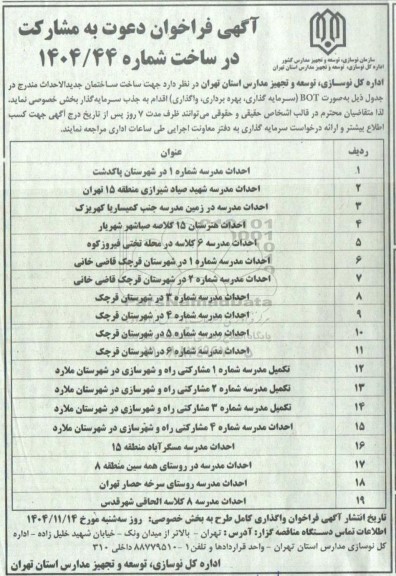 سازمان نوسازی، توسعه و تجهیز مدارس کشور
اداره کل نوسازی، توسعه و تجهیز مدارس استان تهران
آگهی فراخوان دعوت به مشارکت
در ساخت شماره ۱۴۰۴/۴۴
اداره کل نوسازی، توسعه و تجهیز مدارس استان تهران در نظر دارد جهت ساخت ساختمان جدیدالاحداث مندرج در
جدول ذیل به‌صورت BOT (سرمایه گذاری، بهره برداری، واگذاری) اقدام به جذب سرمایه‌گذار بخش خصوصی نماید.
لذا متقاضیان محترم در قالب اشخاص حقیقی و حقوقی می‌توانند ظرف مدت ۷ روز پس از تاریخ درج آگهی جهت کسب
اطلاع بیشتر و ارائه درخواست سرمایه گذاری به دفتر معاونت اجرایی طی ساعات اداری مراجعه نمایند.
ردیف عنوان
۱ احداث مدرسه شماره ۱ در شهرستان پاکدشت
۲ احداث مدرسه شهید صیاد شیرازی منطقه ۱۵ تهران
۳ احداث مدرسه در زمین مدرسه جنب کمیساریا کهریزک
۴ احداث هنرستان ۱۵ کلاسه صباشهر شهریار
۵ احداث مدرسه ۶ کلاسه در محله تختی فیروزکوه
۶ احداث مدرسه شماره ۱ در شهرستان قرچک قاضی خانی
۷ احداث مدرسه شماره ۲ در شهرستان قرچک قاضی خانی
۸ احداث مدرسه شماره ۳ در شهرستان قرچک
۹ احداث مدرسه شماره ۴ در شهرستان قرچک
۱۰ احداث مدرسه شماره ۵ در شهرستان قرچک
۱۱ احداث مدرسه شماره ۶ در شهرستان قرچک
۱۲ تکمیل مدرسه شماره ۱ مشارکتی راه و شهرسازی در شهرستان ملارد
۱۳ تکمیل مدرسه شماره ۲ مشارکتی راه و شهرسازی در شهرستان ملارد
۱۴ تکمیل مدرسه شماره ۳ مشارکتی راه و شهرسازی در شهرستان ملارد
۱۵ احداث مدرسه شماره ۴ مشارکتی راه و شهرسازی در شهرستان ملارد
۱۶ احداث مدرسه مسگرآباد منطقه ۱۵
۱۷ احداث مدرسه در روستای همه سین منطقه ۸
۱۸ احداث مدرسه روستای سرخه حصار تهران
۱۹ احداث مدرسه ۸ کلاسه الحاقی شهرقدس
تاریخ انتشار آگهی فراخوان واگذاری کامل طرح به بخش خصوصی: روز سه‌شنبه مورخ ۱۴۰۴/۱۱/۱۴
اطلاعات تماس دستگاه مناقصه گزار: آدرس: تهران - بالاتر از میدان ونک - خیابان شهید خلیل زاده - اداره
کل نوسازی مدارس استان تهران - واحد قراردادها و تلفن ۱ -۸۸۷۷۹۵۱۰ داخلی ۳۱۰
اداره کل نوسازی، توسعه و تجهیز مدارس استان تهران